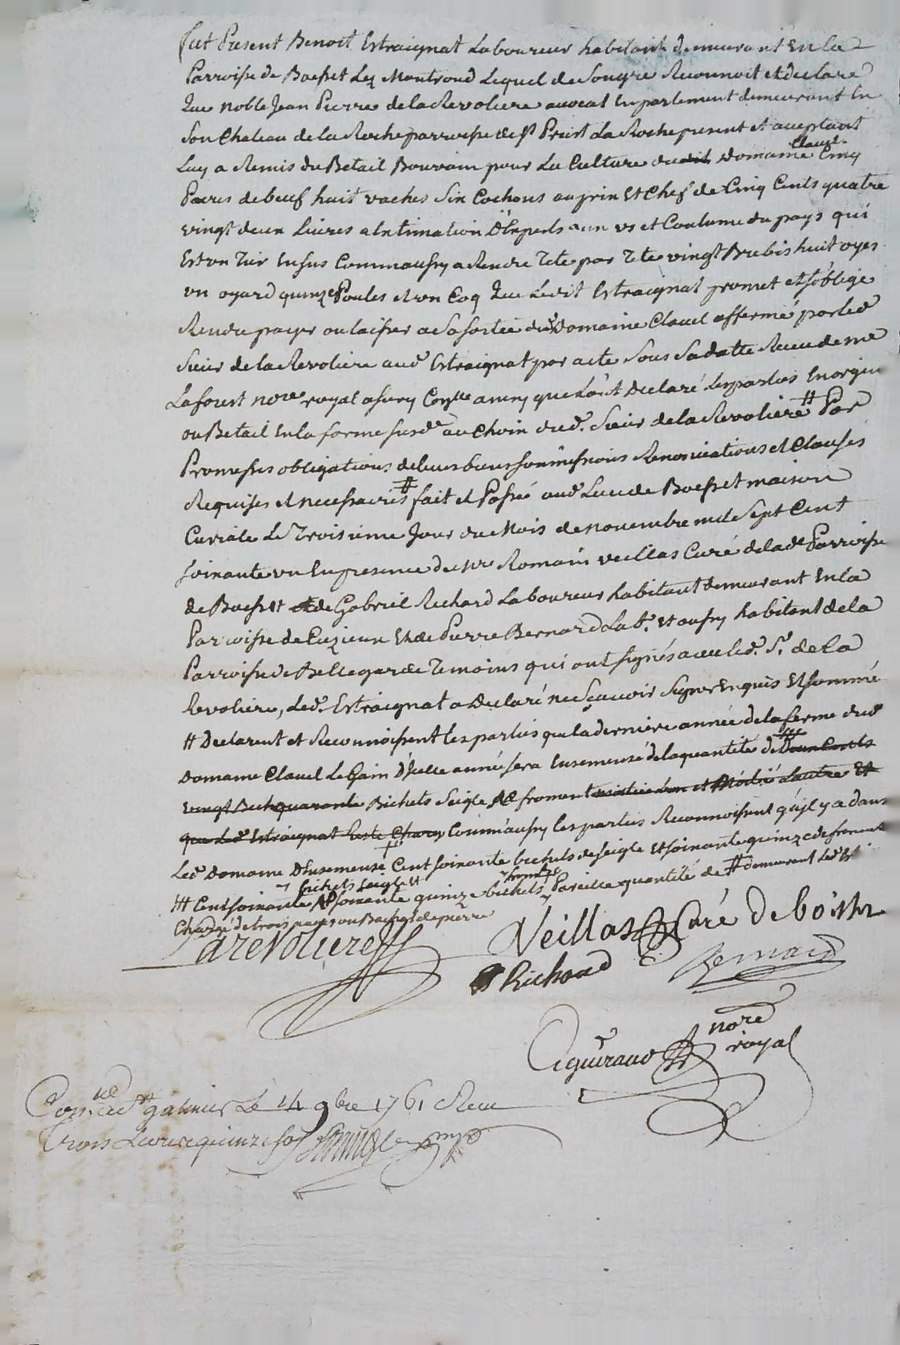 fut Present Benoit Estraignat Laboureur habitant demeurant En la
Parroisse de Boesset Lez Montrond Lequel de Son gre Reconnoit et declare
Que noble Jean Pierre de la Revoliere avocat En parlement demeurant En
Son Chateau de la Roche parroisse de St Priest La Roche present et acceptant
Luy a Remis du Betail Bouvain pour La Culture du dit domaine Clavel Cinq
Paires de beuf huit vaches Six Cochons au prix Et Chef de Cinq Cents quatre
vingt deux Livres a l'Estimation D'Experts aux us et Coutume du pays qui
Est un Tier En sus Comm'aussy a Rendre Tete par Tete vingt Brebis huit oyes
un oyard quinze Poules et un Coq Que Ledit Estraignat promet et s'oblige
Rendre payer ou laisser a Sa Sortie du d Domaine Clavel affermé par led
Sieur de la Revoliere aud Estraignat par acte Sous Sa datte Receu de me
Laforest nore royal a Sury ainsy que L'ont Declaré Les parties
ou Betail En la forme susde au Choix dud. Sieur de la Revoliere # Par
Promesses obligations de leurs biens soumissions Renonciations et Clauses
Requises et necessaires # fait et Passé aud Lieu de Boesset maison
Curiale Le Troisieme Jour du Mois de novembre mil Sept Cent
soixante un En presence de Mre Romain veillas Curé de lade Parroisse
de Boesset et de Gabriel Richard Laboureur habitant demeurant En la
Parroisse de Cuzieu Et de Pierre Bernard Labr. Et aussy habitant de la
Parroisse de Bellegarde Temoins qui ont signés avec led. Sr. de la
Revoliere, Led. Estraignat a Declaré ne Sçavoir Signer Enquis Et sommé
# Declarent et Reconnoissent les parties que la derniere année de la ferme dud
Domaine Clavel Le Gain D'Icelle année sera Ensemensé de la quantité de Deux Cents
vingt Bich quarante Bichets Seigle Et froment moitié d'un et Moitié d'autre Et
que Led Estraignat Comm'aussy les parties Reconnoissent qu'il y a dans
Led Domaine D'Ensemensé Cent soixante bichets de Seigle Et soixante quinze de froment
### Cent soixante bichets seigle et soixante quinze bichets froment Pareille quantité de # demeurant Led Est
Chargé de trois paires ou de pierre
Larevoliere
Veillas Curé de boisset
Richard
Bernard
Eguiraud nore
royal
St galmier Le 14 9bre 1761 Receu
Trois Livres quinze sols